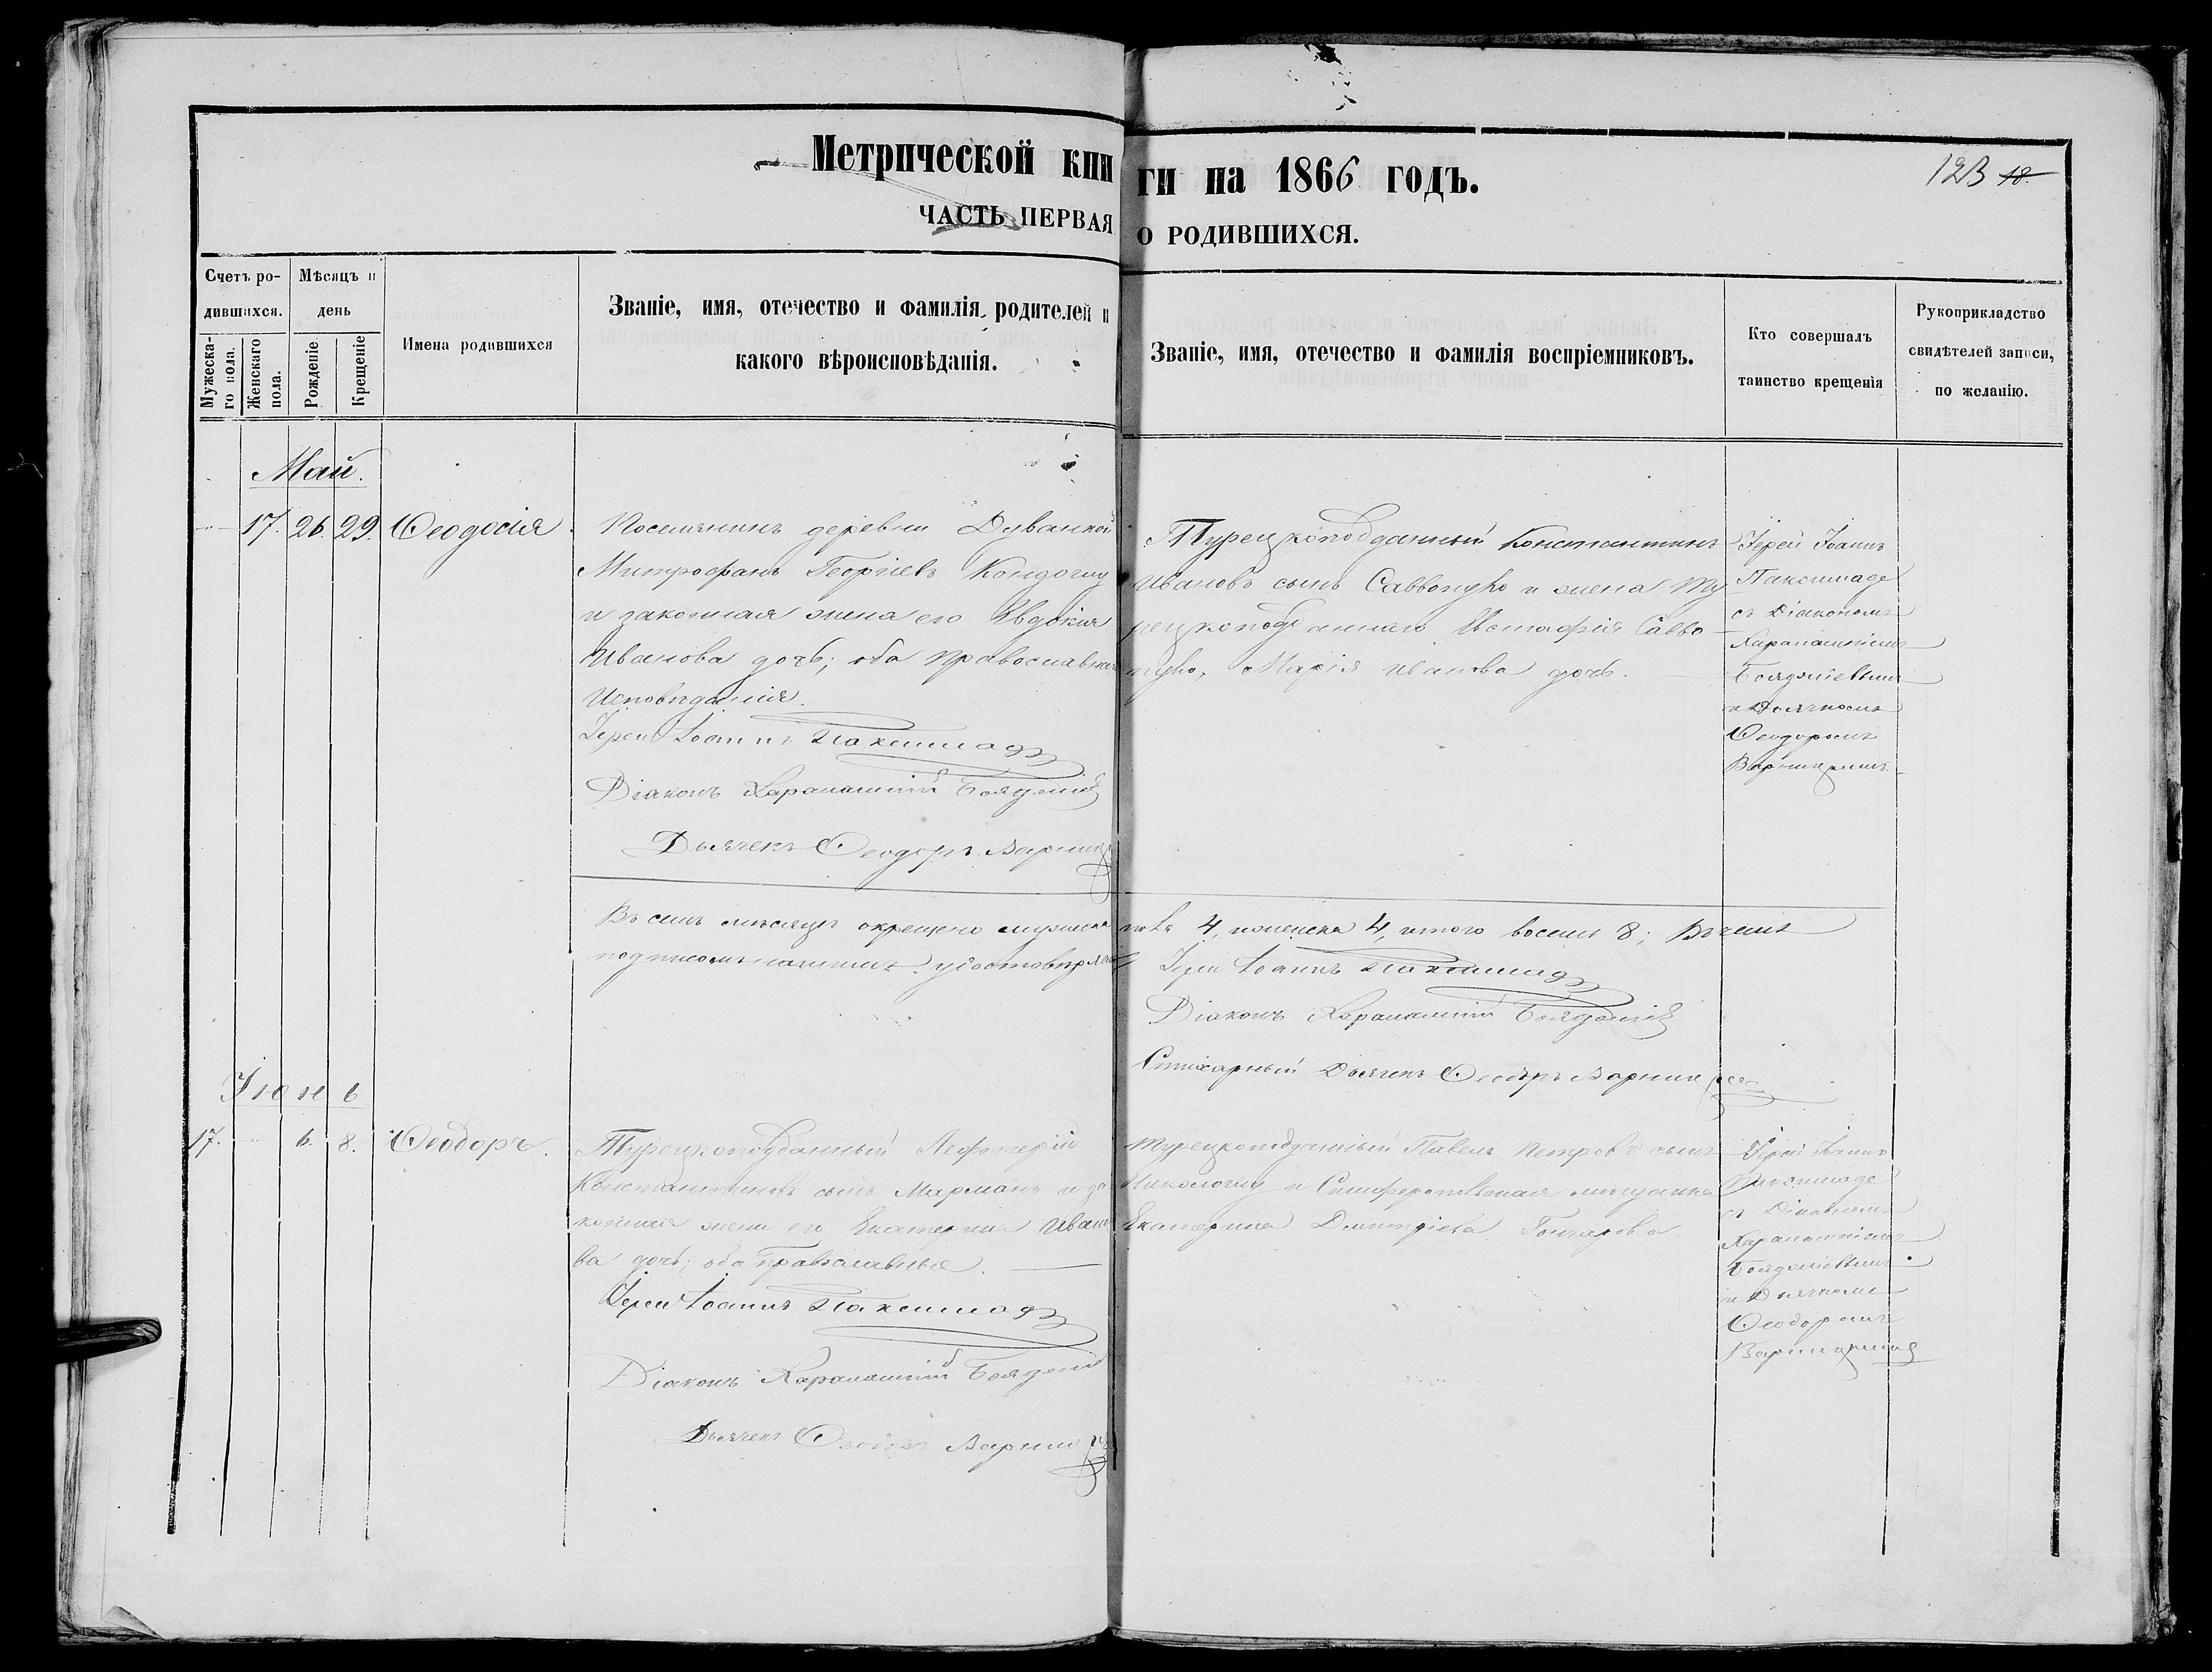 Метрической кни
ги на 1866 годъ.
123 18.
ЧАСТЬ ПЕРВАЯ
О РОДИВШИХСЯ.
Счетъ ро-
дившихся.
Мужеска-
го пола.
Женскаго
пола.
Мѣсяцъ и
день
Рожденіе.
Крещеніе
Имена родившихся
Званіе, имя, отечество и фамилія родителей и
какого вѣроисповѣданія.
Званіе, имя, отечество и фамилія воспріемниковъ.
Кто совершалъ
таинство крещенія
Рукоприкладство
свидѣтелей записи,
по желанію.
Май.
17. 26. 29. Ѳеодосія
Поселянинъ деревни Дуванкой
Митрофанъ Георгіевъ Кондогиу
и законная жена его Явдокія
Иванова дочь; оба православнаго
Исповѣданія.
Іерей Іоаннъ Паксимаде
Діаконъ Харалампій Бояджіев
Дьячекъ Ѳеодоръ Варниц
Турецкоподданный Константинъ
Ивановъ сынъ Саввопуло и жена Ту
рецкоподданнаго Истафія Савво
пуло, Марія Иванова дочь.
Іерей Іоаннъ
Паксимаде
съ Діакономъ
Харалампіемъ
Бояджіевымъ
и Дьячкомъ
Ѳеодоромъ
Въ семъ мѣсяцѣ окрещено мужеска
пола 4, женска 4, итого восемь 8; Въ чемъ
подписомъ нашимъ удостовѣряемъ
Іерей Іоаннъ Паксимаде
Діаконъ Харалампій Бояджіев
Стихарный Дьячекъ Ѳеодоръ
Іюнь
17. 6. 8. Ѳеодоръ.
Турецкоподданный Лефтерій
Константиновъ сынъ Марманъ и за
конная жена его Екатерина Ивано
ва дочь; оба Православные.
Іерей Іоаннъ Паксимаде
Діаконъ Харалампій Бояджіев
Дьячекъ Ѳеодоръ Варниц
Турецкоподданный Павелъ Петровъ сынъ
Никологиу и Симферопольская мѣщанка
Екатерина Дмитріева Гончарова
Іерей Іоаннъ
Паксимаде
съ Діакономъ
Харалампіемъ
Бояджіевымъ
и Дьячкомъ
Ѳеодоромъ